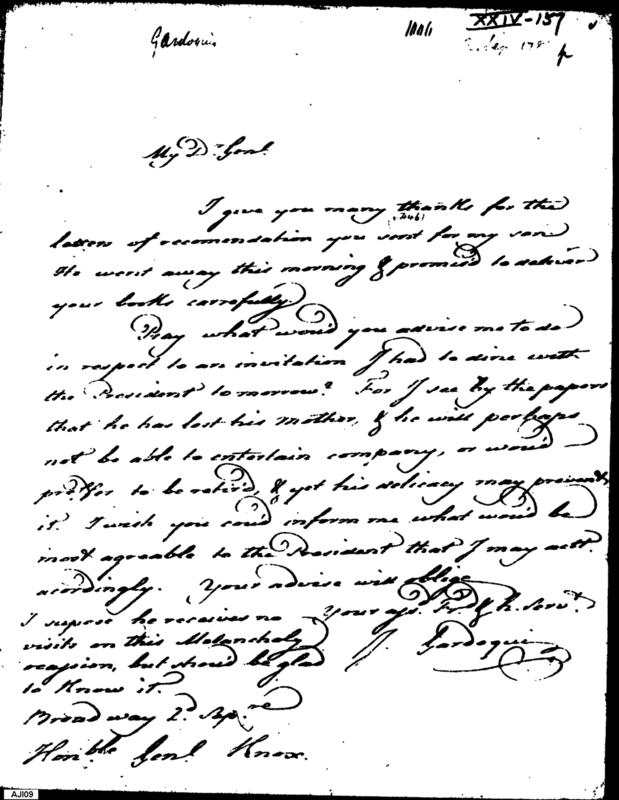 Gardoqui
XXIV-157
2 Sep 178
My Dr. Genl.
I give you many thanks for the
letters of recomendation you sent for my son
He went away this morning & promis'd to deliver
your books carrefully.
Pray what wou'd you advise me to do
in respect to an invitation I had to dine with
the President tomorrow? For I see by the papers
that he has lost his mother, & he will perhaps
not be able to entertain company, or wou'd
preffer to be retir'd, & yet his delicacy may prevent
it. I wish you cou'd inform me what wou'd be
most agreable to the President that I may act
acordingly. Your advise will oblige
Your afft. Frd. & h. Servt.
J. Gardoqui
I supose he receives no
visits on this Melancholy
ocassion, but shou'd be glad
to Know it.
Broadway 2d. Sepre.
Honble Genl. Knox.
AJI09